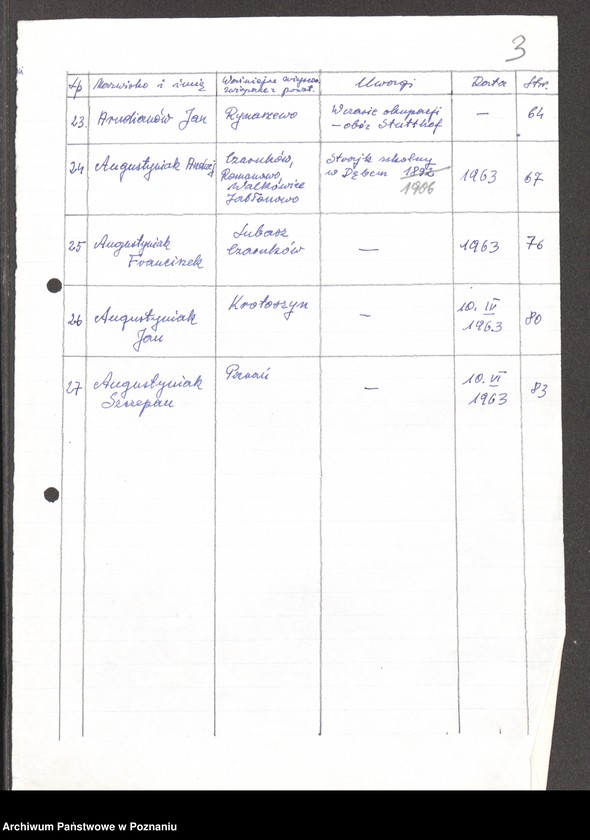 3
Lp Nazwisko i imię Ważniejsze miejscow. związane z powst. Uwagi Data Str.
23. Arndianów Jan Rynarzewo W czasie okupacji – obóz Stutthof — 64
24 Augustyniak Andrzej Czarnków, Romanowo, Walkowice Jabłonowo Strajk szkolny w Dębem 1892 1906 1963 67
25 Augustyniak Franciszek Lubasz Czarnków — 1963 76
26 Augustyniak Jan Krotoszyn — 10. IV 1963 80
27 Augustyniak Szczepan Poznań — 10. VI 1963 83
Archiwum Państwowe w Poznaniu